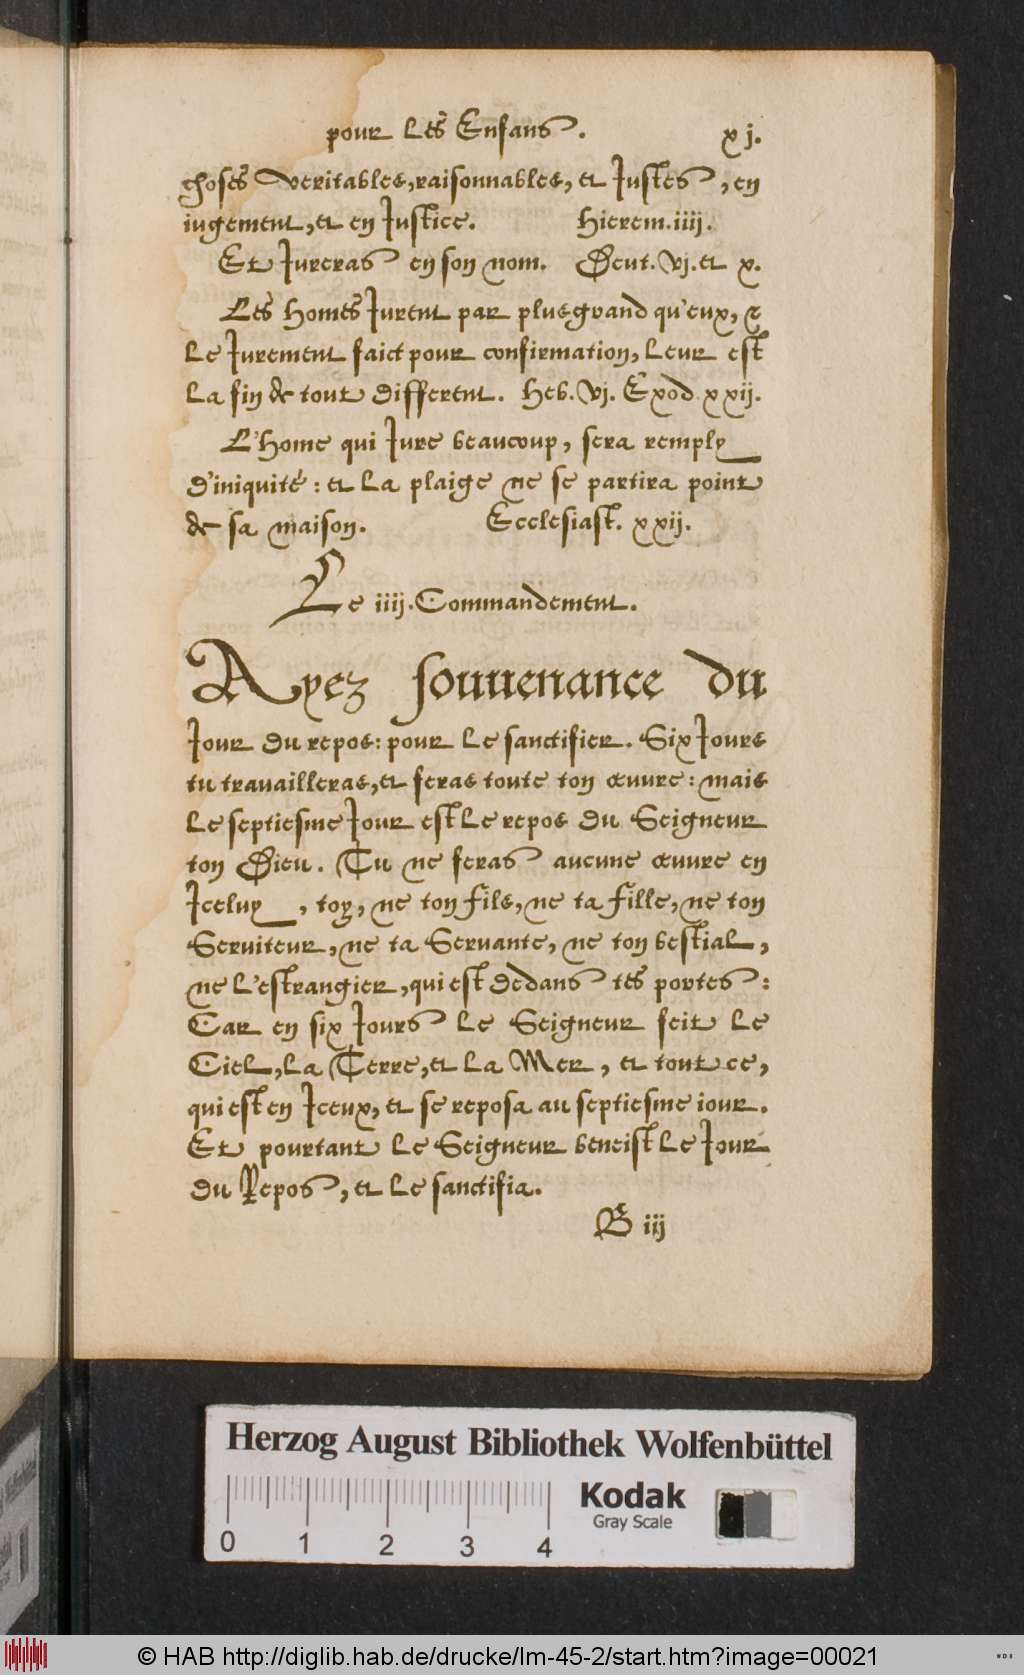 pour les Enfans. xj.
choses veritables, raisonnables, et Justes, en
iugement, et en Justice. Hierem. iiij.
Et Jureras en son nom. Deut. vj. et x.
Les homes Jurent par plus grand qu'eux, &
le Jurement faict pour confirmation, leur est
la fin de tout different. Heb. vj. Exod. xxij.
L'home qui Jure beaucoup, sera remply
d'iniquité : et la plaige ne se partira point
de sa maison. Ecclesiast. xxij.
Le iiij. Commandement.
Ayez souuenance du
Jour du repos : pour le sanctifier. Six Jours
tu travailleras, et feras toute ton œuure : mais
le septiesme Jour est le repos du Seigneur
ton Dieu. Tu ne feras aucune œuure en
Jceluy, toy, ne ton fils, ne ta fille, ne ton
Seruiteur, ne ta Seruante, ne ton bestial,
ne l'estrangier, qui est dedans tes portes :
Car en six Jours le Seigneur feit le
Ciel, la Terre, et la Mer, et tout ce,
qui est en Jceux, et se reposa au septiesme iour.
Et pourtant le Seigneur beneist le Jour
du Repos, et le sanctifia.
B iij
Herzog August Bibliothek Wolfenbüttel
Kodak
Gray Scale
0 1 2 3 4
© HAB http://diglib.hab.de/drucke/lm-45-2/start.htm?image=00021